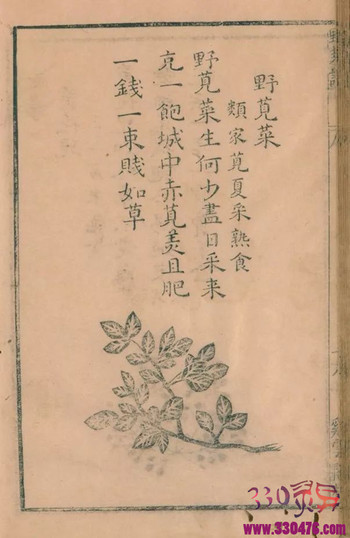 野莧菜
類家莧夏采熟食
野莧菜生何少盡日采来
充一飽城中赤莧美且肥
一錢一束賤如草
330
www.330476.com